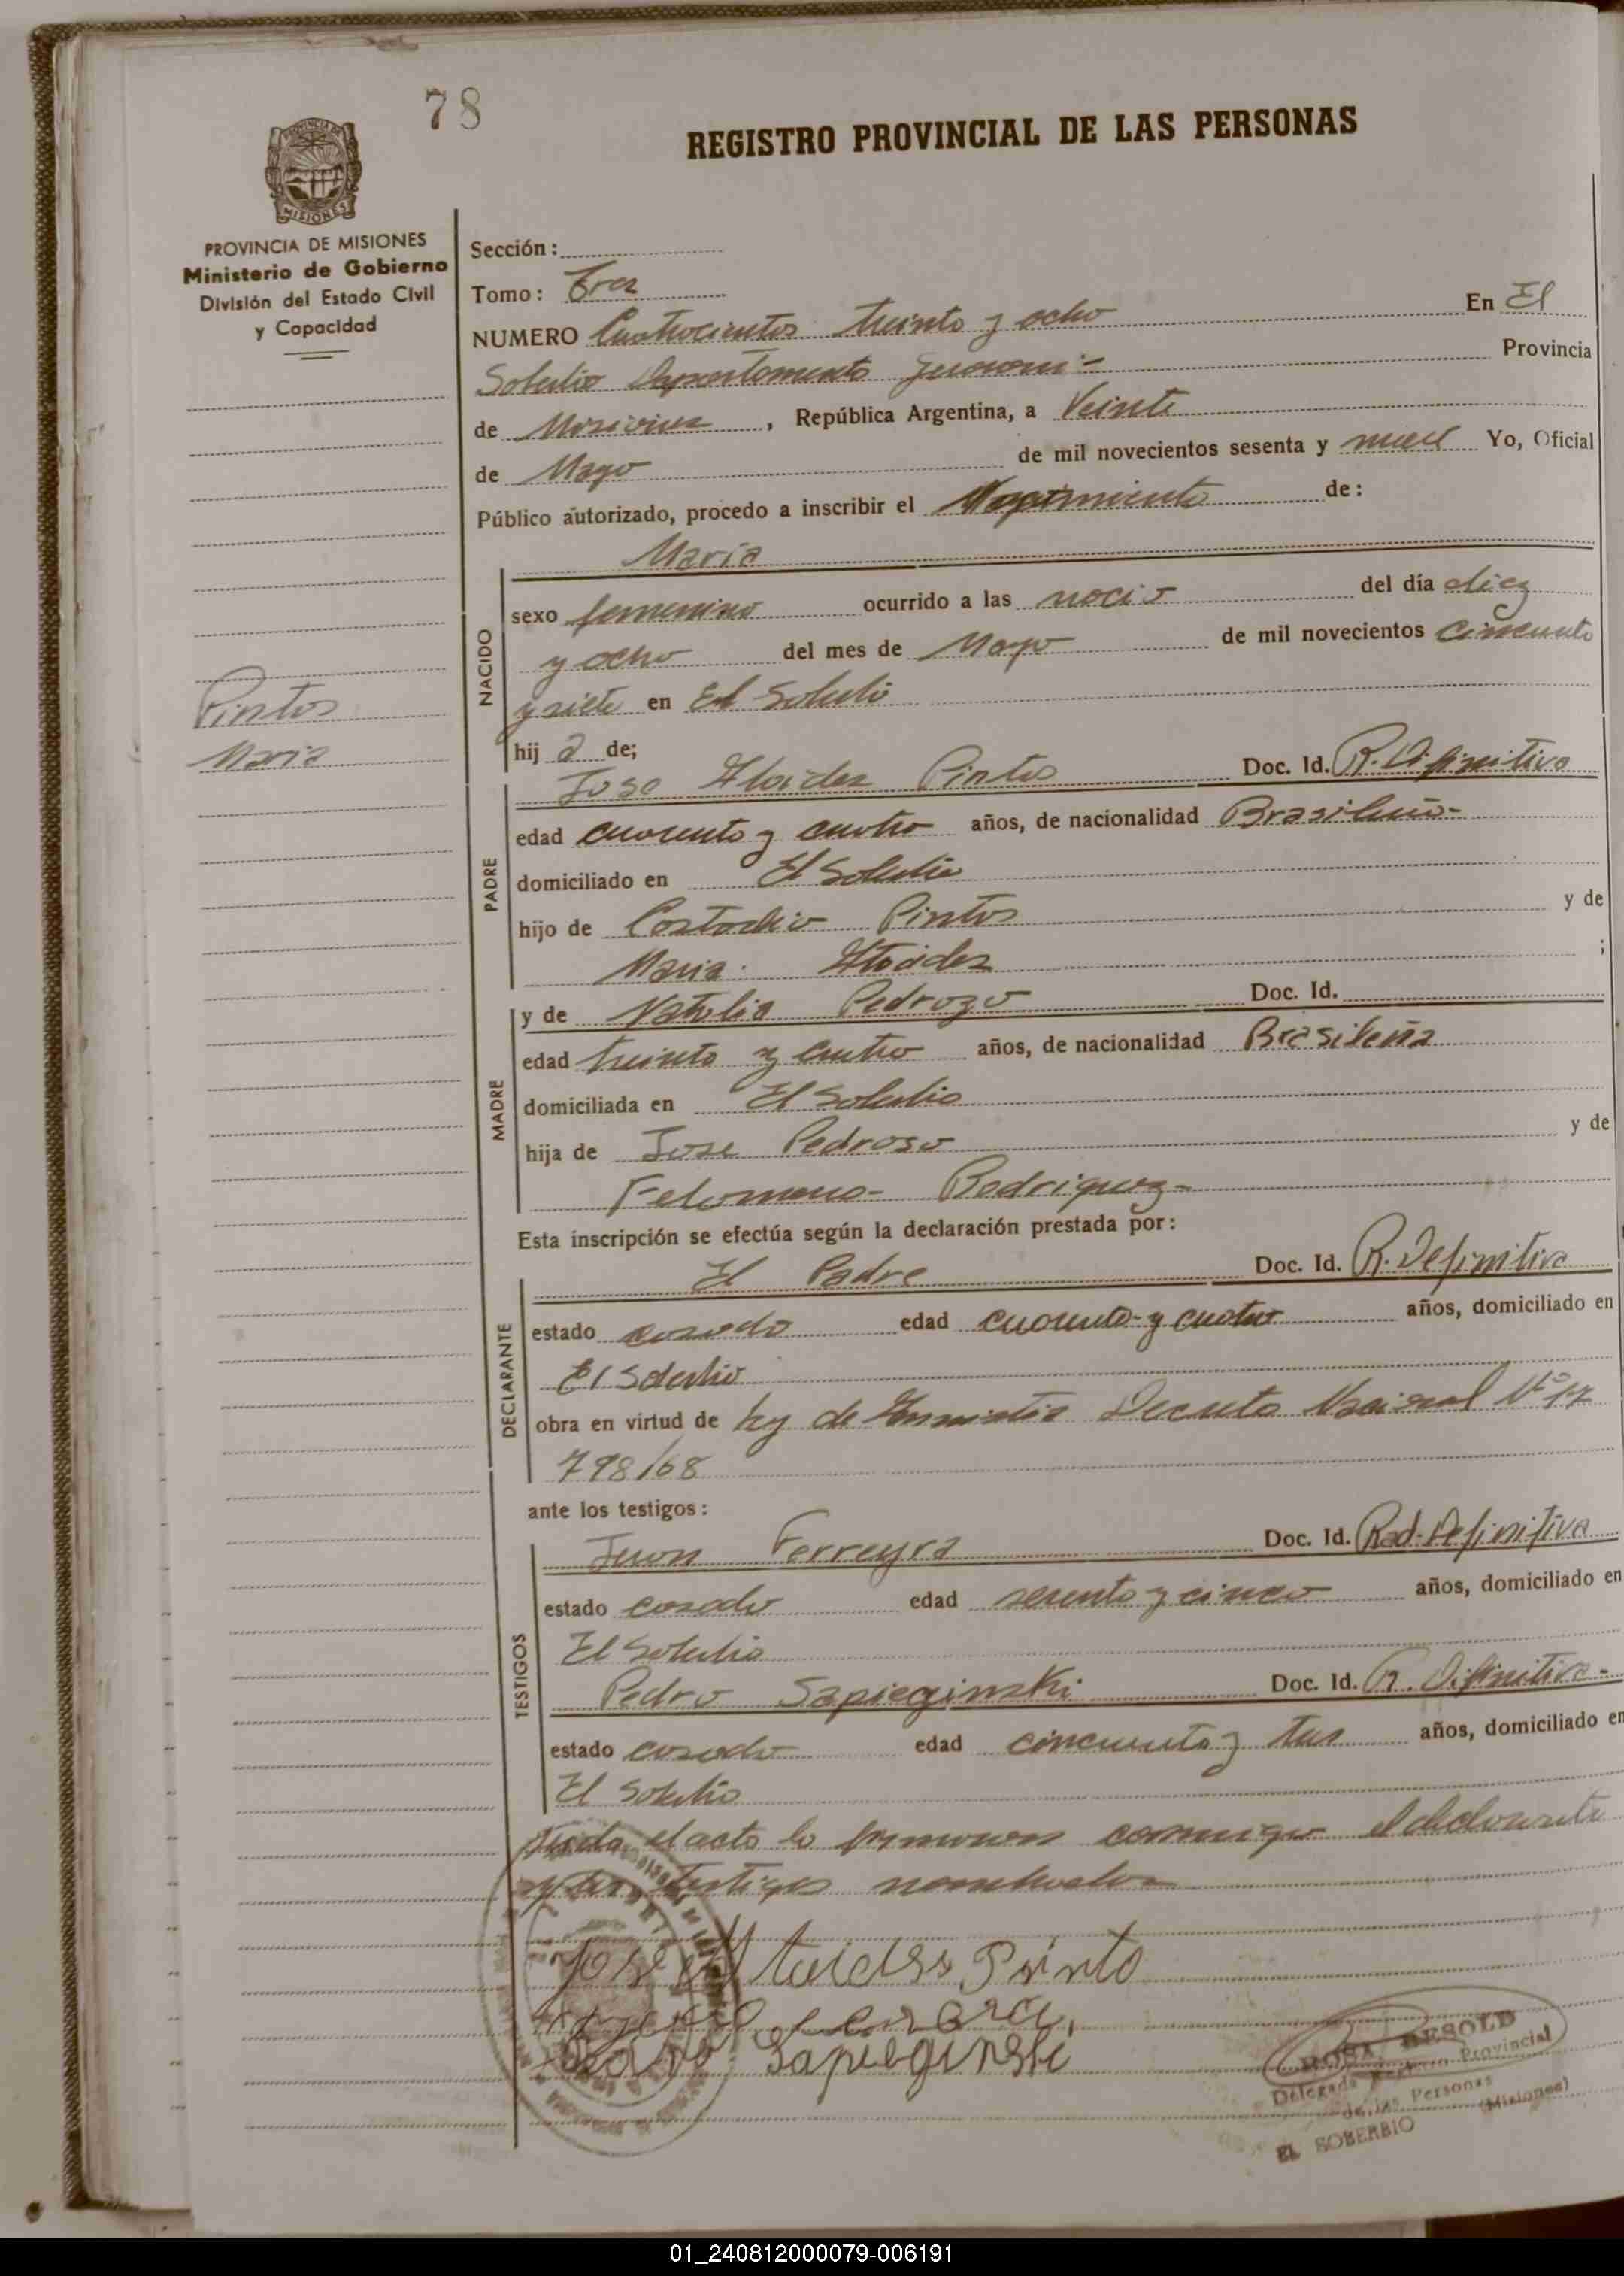 78
REGISTRO PROVINCIAL DE LAS PERSONAS
PROVINCIA DE
MISIONES
PROVINCIA DE MISIONES
Ministerio de Gobierno
División del Estado Civil
y Capacidad
Sección:
Tomo: Tres
NUMERO Cuatrocientos treinta y ocho En El
Soberbio Departamento Guarani - Provincia
de Misiones, República Argentina, a Veinte
de Mayo de mil novecientos sesenta y nueve Yo, Oficial
Público autorizado, procedo a inscribir el Nacimiento de:
María
NACIDO
sexo femenino ocurrido a las del día diez
y ocho del mes de Mayo de mil novecientos cincuenta
y siete en El Soberbio
Pintos
Maria
hij a de;
PADRE
Jose Ataides Pintos Doc. Id. R. Difinitiva
edad cuarenta y cuatro años, de nacionalidad Brasileño -
domiciliado en El Soberbio
hijo de Costodio Pintos y de
Maria Ataides ;
MADRE
y de Natalia Pedrozo Doc. Id.
edad treinta y cuatro años, de nacionalidad Brasileña
domiciliada en El Soberbio
hija de Jose Pedroso y de
Felomena - Rodriguez -
Esta inscripción se efectúa según la declaración prestada por:
DECLARANTE
El Padre Doc. Id. R. Definitiva
estado casado edad cuarenta y cuatro años, domiciliado en
El Soberbio
obra en virtud de ley de Decreto Nacional Nº 17
798/68
ante los testigos:
TESTIGOS
Juan Ferreyra Doc. Id. Rad. Definitiva
estado casado edad sesenta y cinco años, domiciliado en
El Soberbio
Pedro Sapieginski Doc. Id. R. Difinitiva -
estado casado edad cincuenta y tres años, domiciliado en
El Soberbio
el acto lo firmaron conmigo el declarante
y los testigos nombrados
Jose Ataides Pinto
Sapieginski
ROSA DESOLD
Delegada Registro Provincial
de las Personas
EL SOBERBIO (Misiones)
01_240812000079-006191